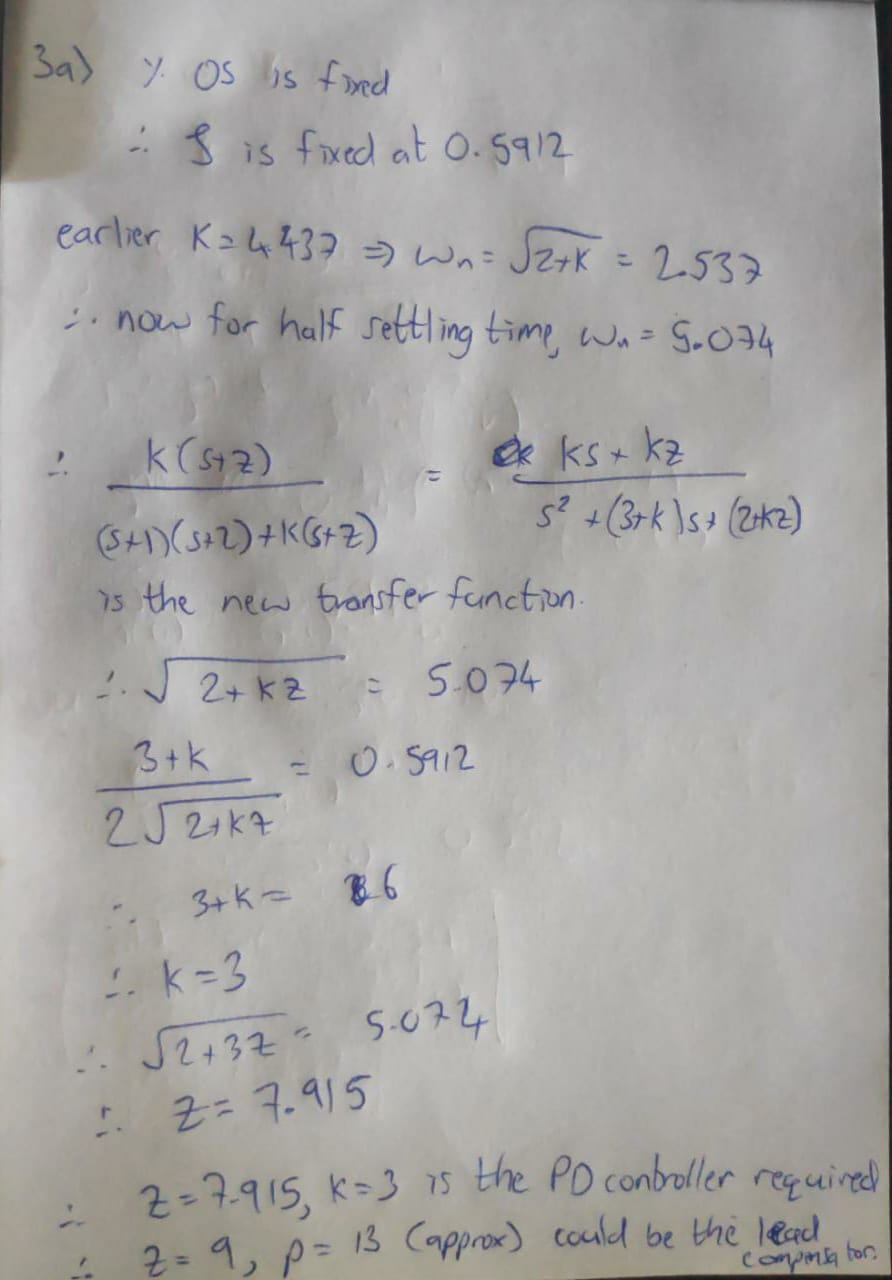 3a) % OS is fixed
∴ ζ is fixed at 0.5912
earlier K=4.437 ⇒ ωn = √2+K = 2.537
∴ now for half settling time, ωn = 5.074
∴ k(s+z) / (s+1)(s+2)+K(s+z) = ks + kz / s² + (3+k)s + (2+kz)
is the new transfer function.
∴ √2+kz = 5.074
3+k / 2√2+kz = 0.5912
∴ 3+k = 6
∴ k=3
∴ √2+3z = 5.074
∴ z = 7.915
∴ z=7.915, k=3 is the PD controller required
∴ z=9, p=13 (approx) could be the lead
compensator.